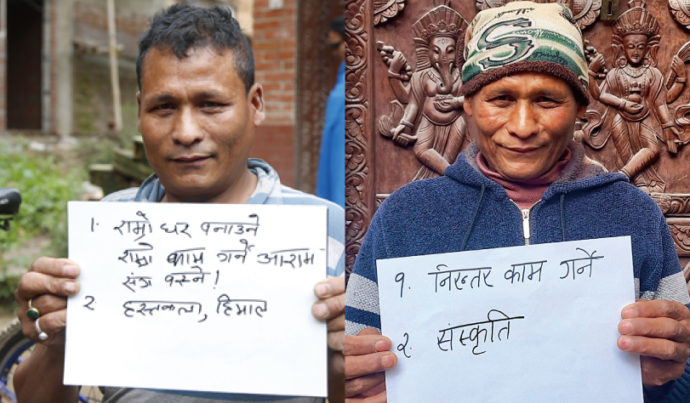 १. राम्रो घर बनाउने
राम्रो काम गर्ने आराम
संग बस्ने!
२ हस्तकला, हिमाल
१. निरन्तर काम गर्ने
२. संस्कृति
S